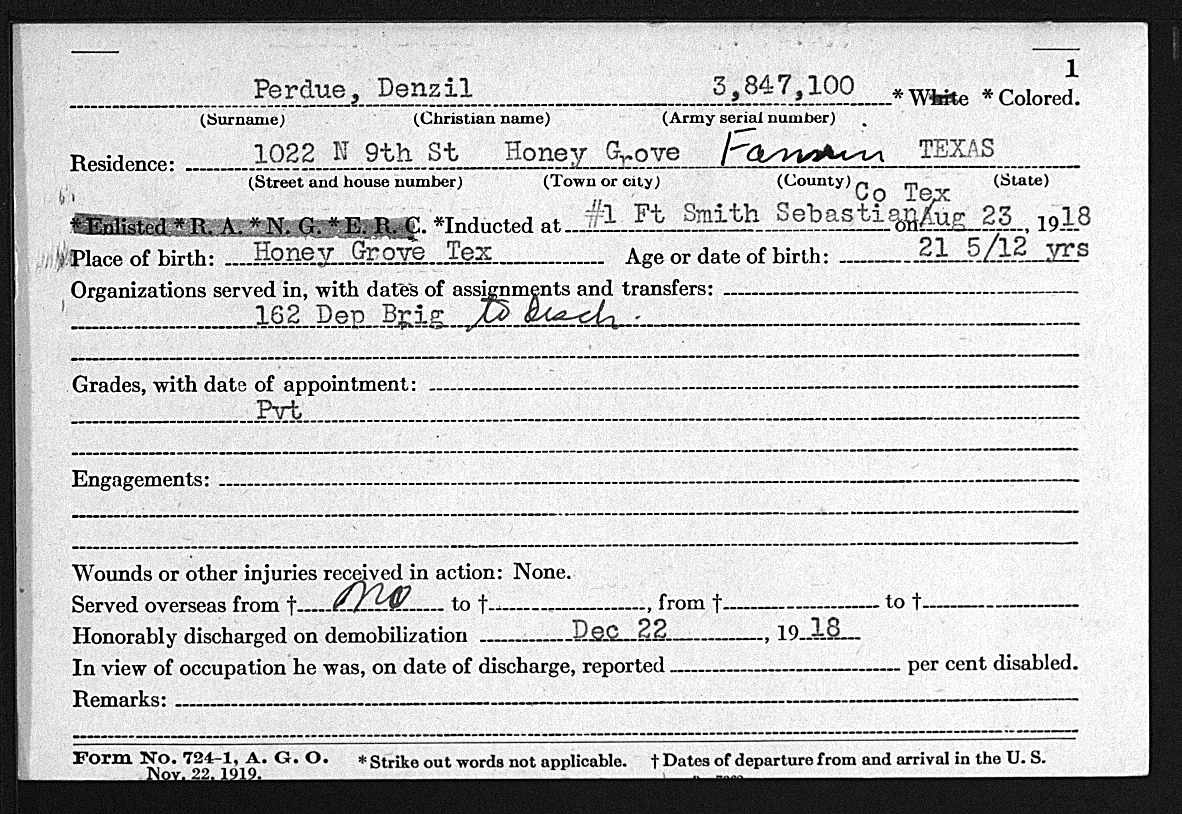 1
Perdue, Denzil 3,847,100 * White * Colored.
(Surname) (Christian name) (Army serial number)
Residence: 1022 N 9th St Honey Grove Fannin TEXAS
(Street and house number) (Town or city) (County) (State)
Co Tex
*Enlisted * R. A. * N. G. * E. R. C. *Inducted at #1 Ft Smith Sebastian on Aug 23, 1918
Place of birth: Honey Grove Tex Age or date of birth: 21 5/12 yrs
Organizations served in, with dates of assignments and transfers:
162 Dep Brig to Disch.
Grades, with date of appointment:
Pvt
Engagements:
Wounds or other injuries received in action: None.
Served overseas from † no to †, from † to †
Honorably discharged on demobilization Dec 22, 1918
In view of occupation he was, on date of discharge, reported per cent disabled.
Remarks:
Form No. 724-1, A. G. O. *Strike out words not applicable. † Dates of departure from and arrival in the U. S.
Nov. 22, 1919.